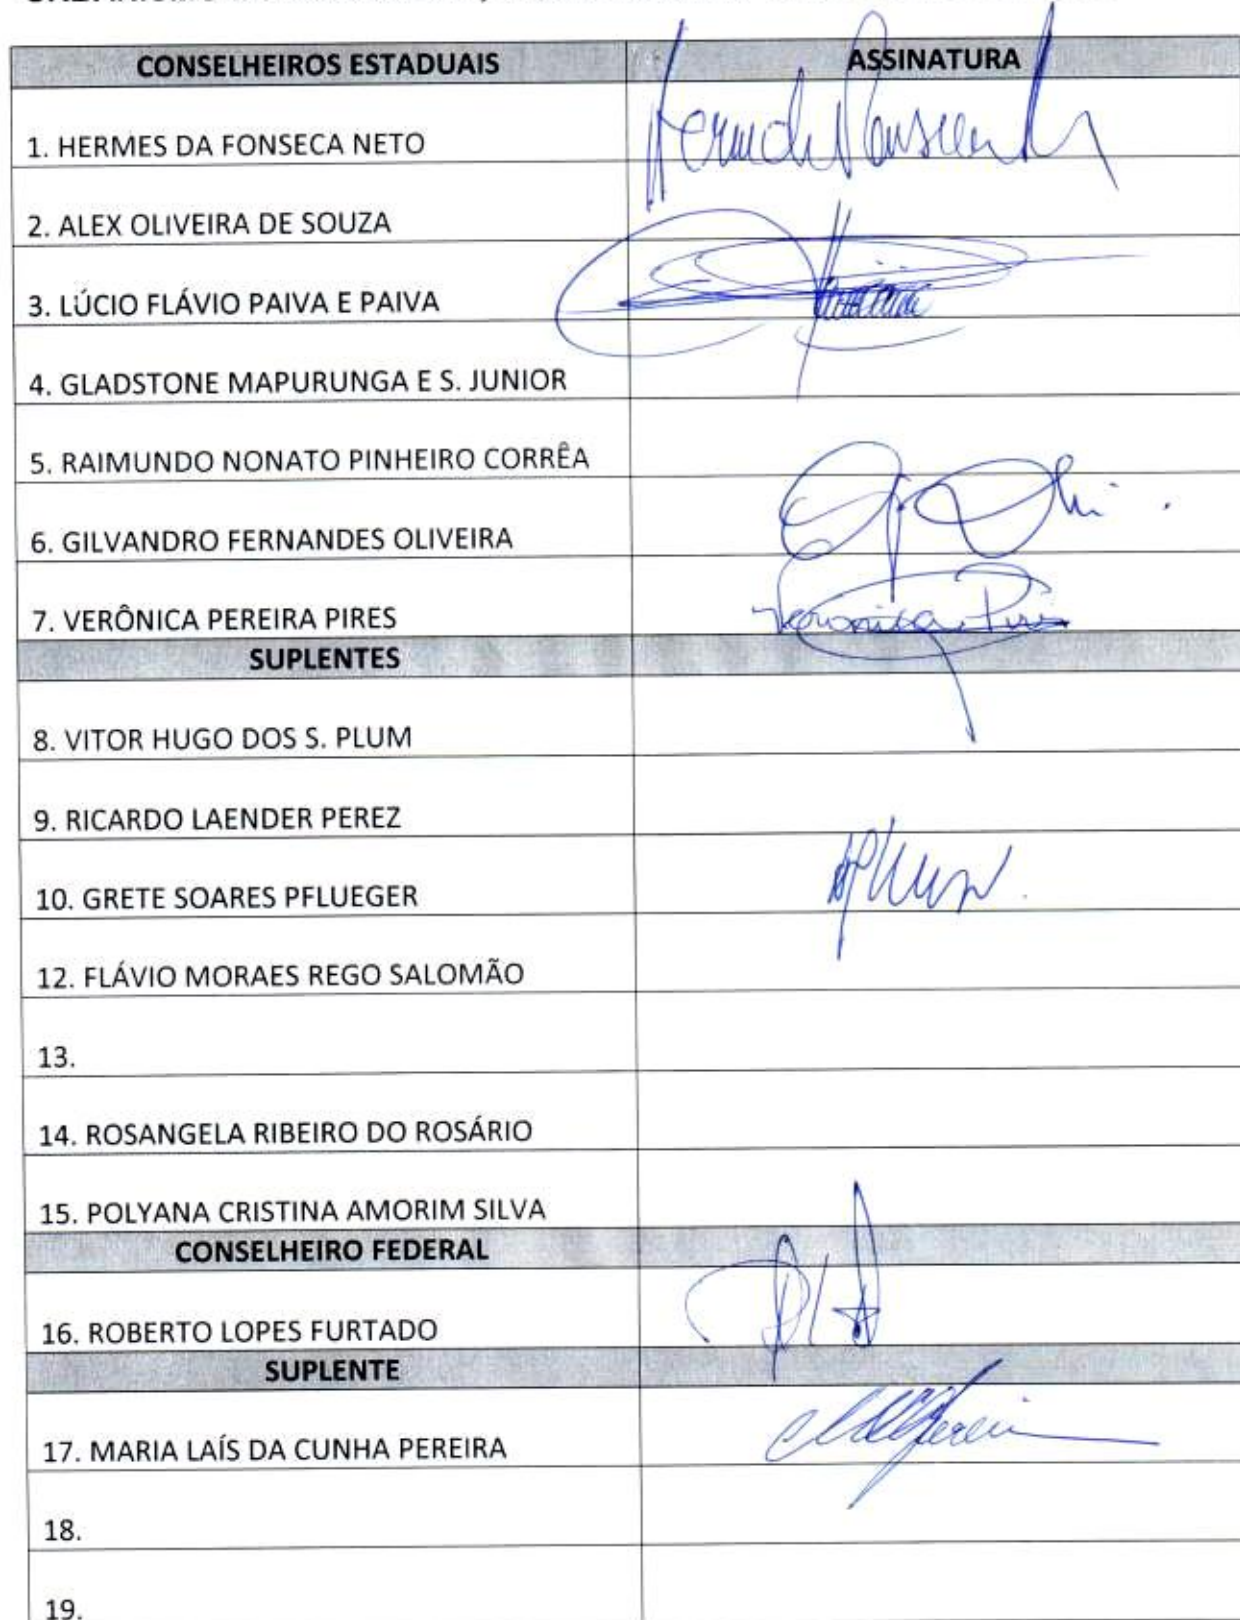 CONSELHEIROS ESTADUAIS ASSINATURA
1. HERMES DA FONSECA NETO
2. ALEX OLIVEIRA DE SOUZA
3. LÚCIO FLÁVIO PAIVA E PAIVA
4. GLADSTONE MAPURUNGA E S. JUNIOR
5. RAIMUNDO NONATO PINHEIRO CORRÊA
6. GILVANDRO FERNANDES OLIVEIRA
7. VERÔNICA PEREIRA PIRES Veronica Pires
SUPLENTES
8. VITOR HUGO DOS S. PLUM
9. RICARDO LAENDER PEREZ
10. GRETE SOARES PFLUEGER
12. FLÁVIO MORAES REGO SALOMÃO
13.
14. ROSANGELA RIBEIRO DO ROSÁRIO
15. POLYANA CRISTINA AMORIM SILVA
CONSELHEIRO FEDERAL
16. ROBERTO LOPES FURTADO
SUPLENTE
17. MARIA LAÍS DA CUNHA PEREIRA
18.
19.